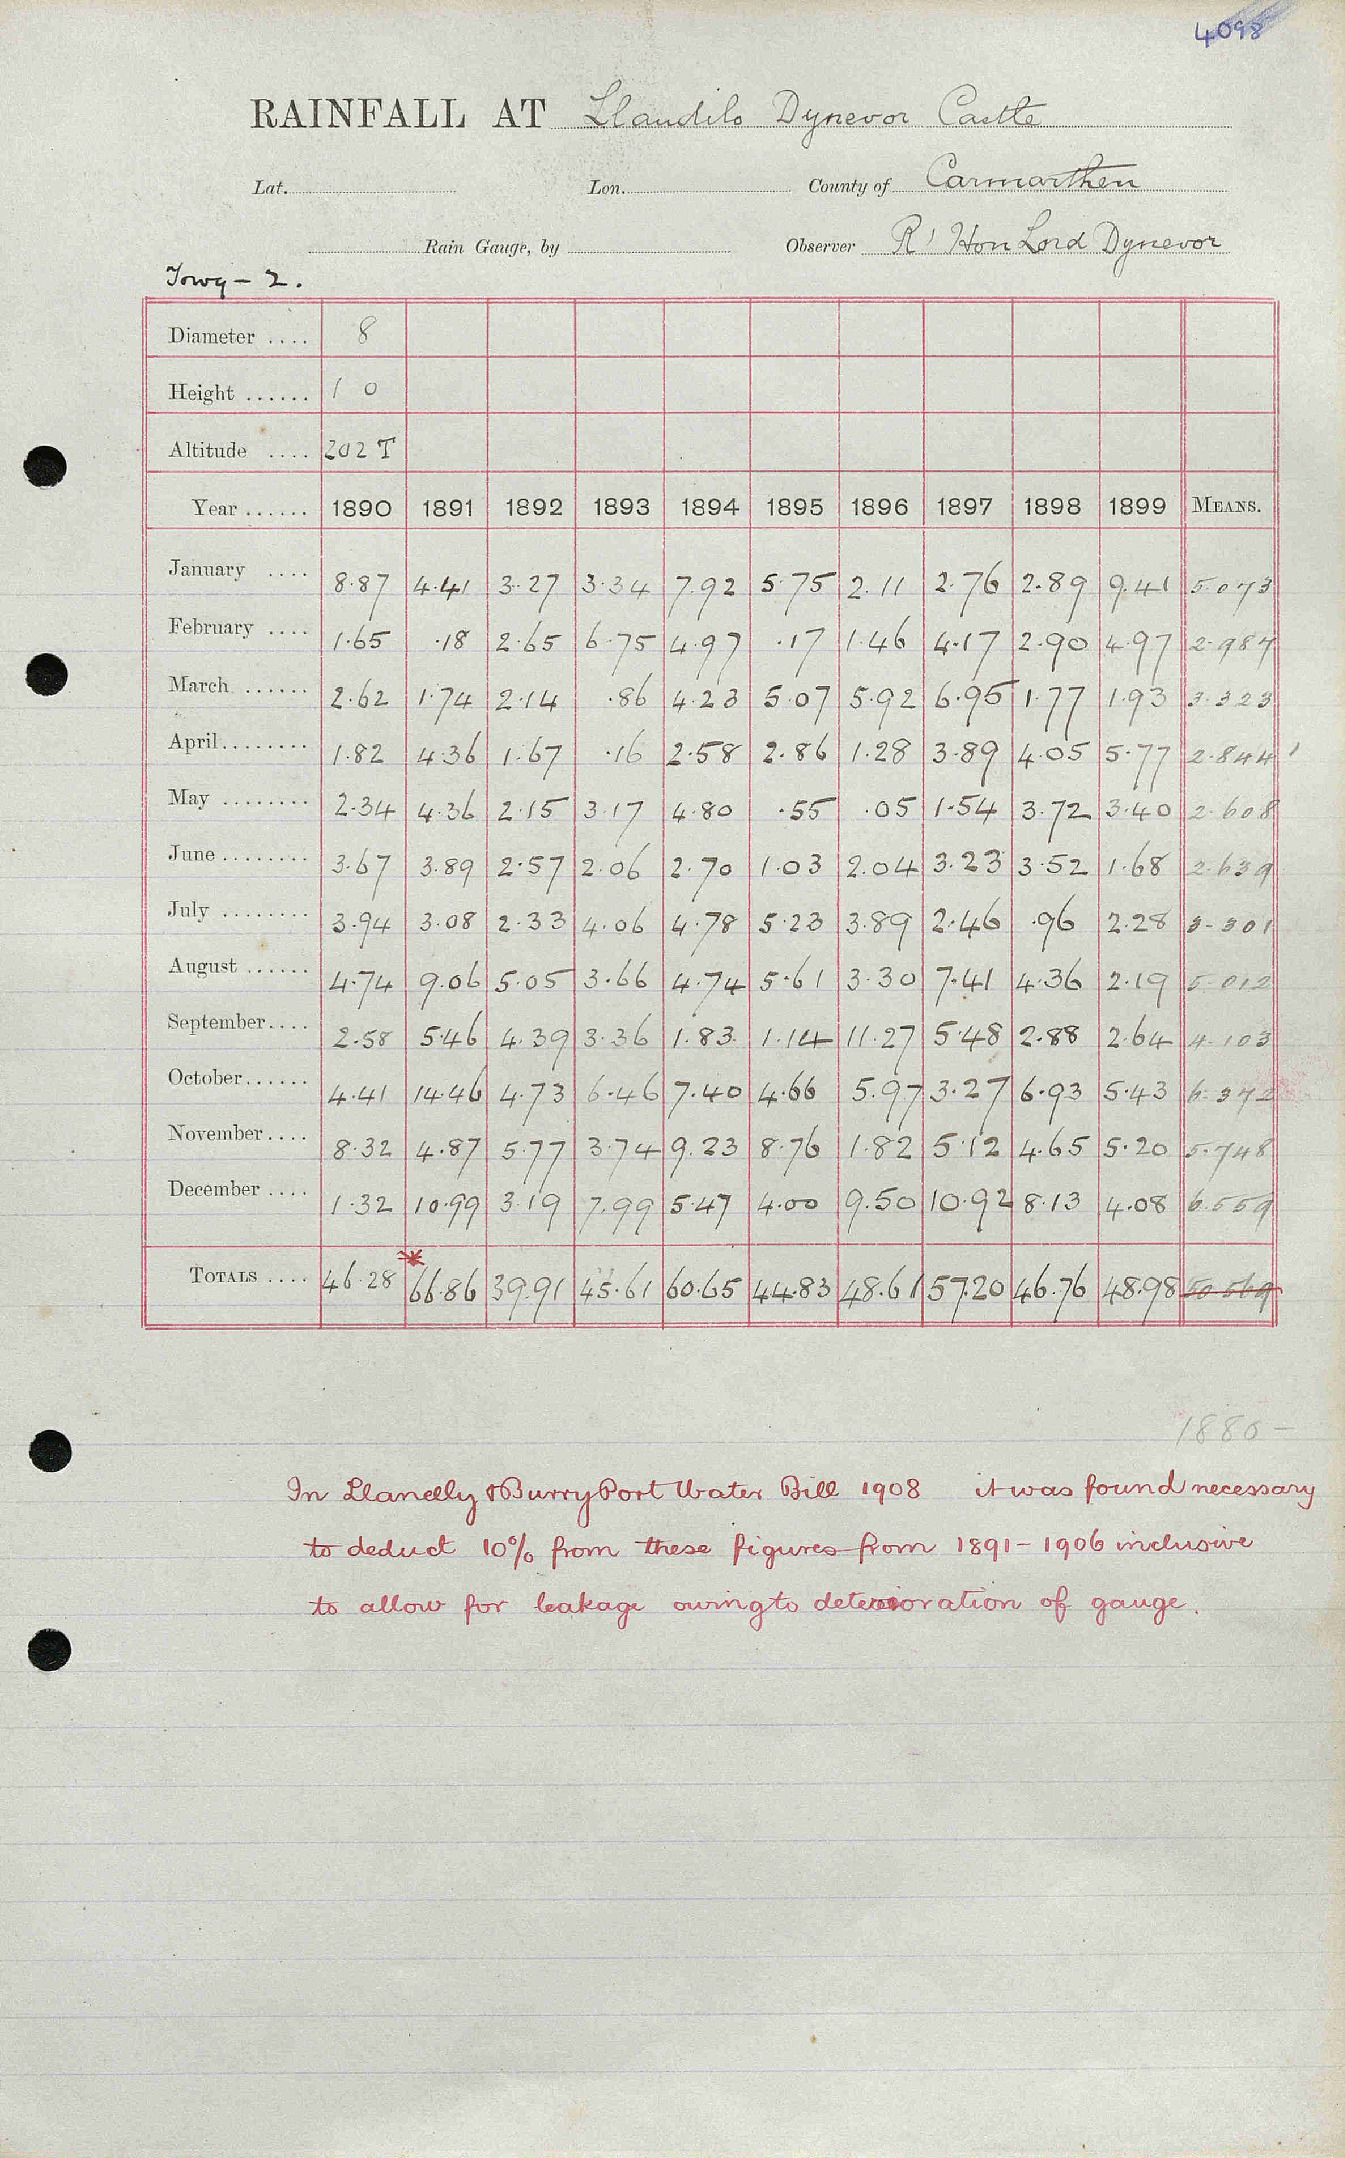 4098
RAINFALL AT Llandilo Dynevor Castle
Lat. Lon. County of Carmarthen
Rain Gauge, by Observer Rt Hon Lord Dynevor
Towy - 2.
Diameter .... 8
Height ...... 1 0
Altitude .... 202 T
Year ...... 1890 1891 1892 1893 1894 1895 1896 1897 1898 1899 MEANS.
January .... 8.87 4.41 3.27 3.34 7.92 5.75 2.11 2.76 2.89 9.41 5.073
February .... 1.65 .18 2.65 6.75 4.97 .17 1.46 4.17 2.90 4.97 2.987
March ...... 2.62 1.74 2.14 .86 4.23 5.07 5.92 6.95 1.77 1.93 3.323
April........ 1.82 4.36 1.67 .16 2.58 2.86 1.28 3.89 4.05 5.77 2.844
May ........ 2.34 4.36 2.15 3.17 4.80 .55 .05 1.54 3.72 3.40 2.608
June ........ 3.67 3.89 2.57 2.06 2.70 1.03 2.04 3.23 3.52 1.68 2.639
July ........ 3.94 3.08 2.33 4.06 4.78 5.23 3.89 2.46 .96 2.28 3.301
August ...... 4.74 9.06 5.05 3.66 4.74 5.61 3.30 7.41 4.36 2.19 5.012
September.... 2.58 5.46 4.39 3.36 1.83 1.14 11.27 5.48 2.88 2.64 4.103
October...... 4.41 14.46 4.73 6.46 7.40 4.66 5.97 3.27 6.93 5.43 6.372
November.... 8.32 4.87 5.77 3.74 9.23 8.76 1.82 5.12 4.65 5.20 5.748
December .... 1.32 10.99 3.19 7.99 5.47 4.00 9.50 10.92 8.13 4.08 6.559
TOTALS .... 46.28 66.86 39.91 45.61 60.65 44.83 48.61 57.20 46.76 48.98 50.569
1880-
In Llanelly & Burry Port Water Bill 1908 it was found necessary
to deduct 10% from these figures from 1891-1906 inclusive
to allow for leakage owing to deterioration of gauge.